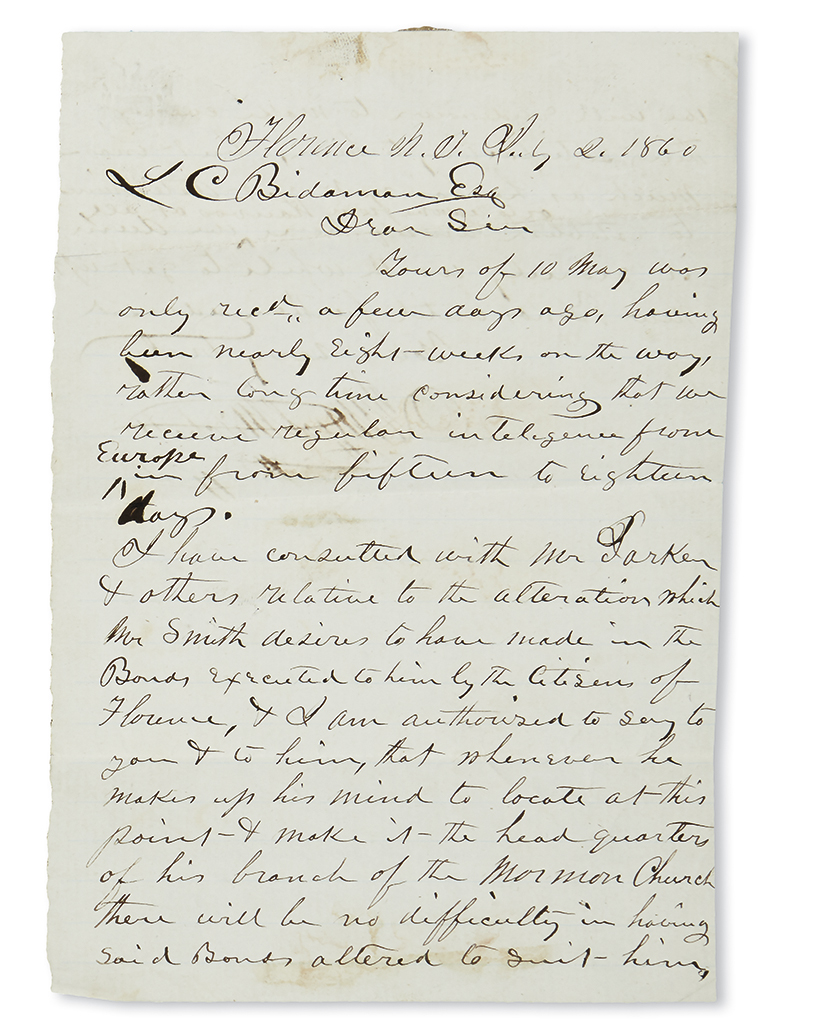 Florence N. T. July 2. 1860
L C Bidaman Esq
Dear Sir
Yours of 10 May was
only recd,, a few days ago, having
been nearly Eight-weeks on the way,
rather long time considering that we
receive regular inteligence from
Europe
in from fifteen to Eighteen
days.
I have consulted with Mr Parker
& others relative to the alteration which
Mr Smith desires to have made in the
Bonds executed to him by the Citizens of
Florence, & I am authorised to say to
you & to him, that whenever he
makes up his mind to locate at this
point - & make it - the head quarters
of his branch of the Mormon Church
there will be no difficulty in having
said Bonds altered to suit - him,